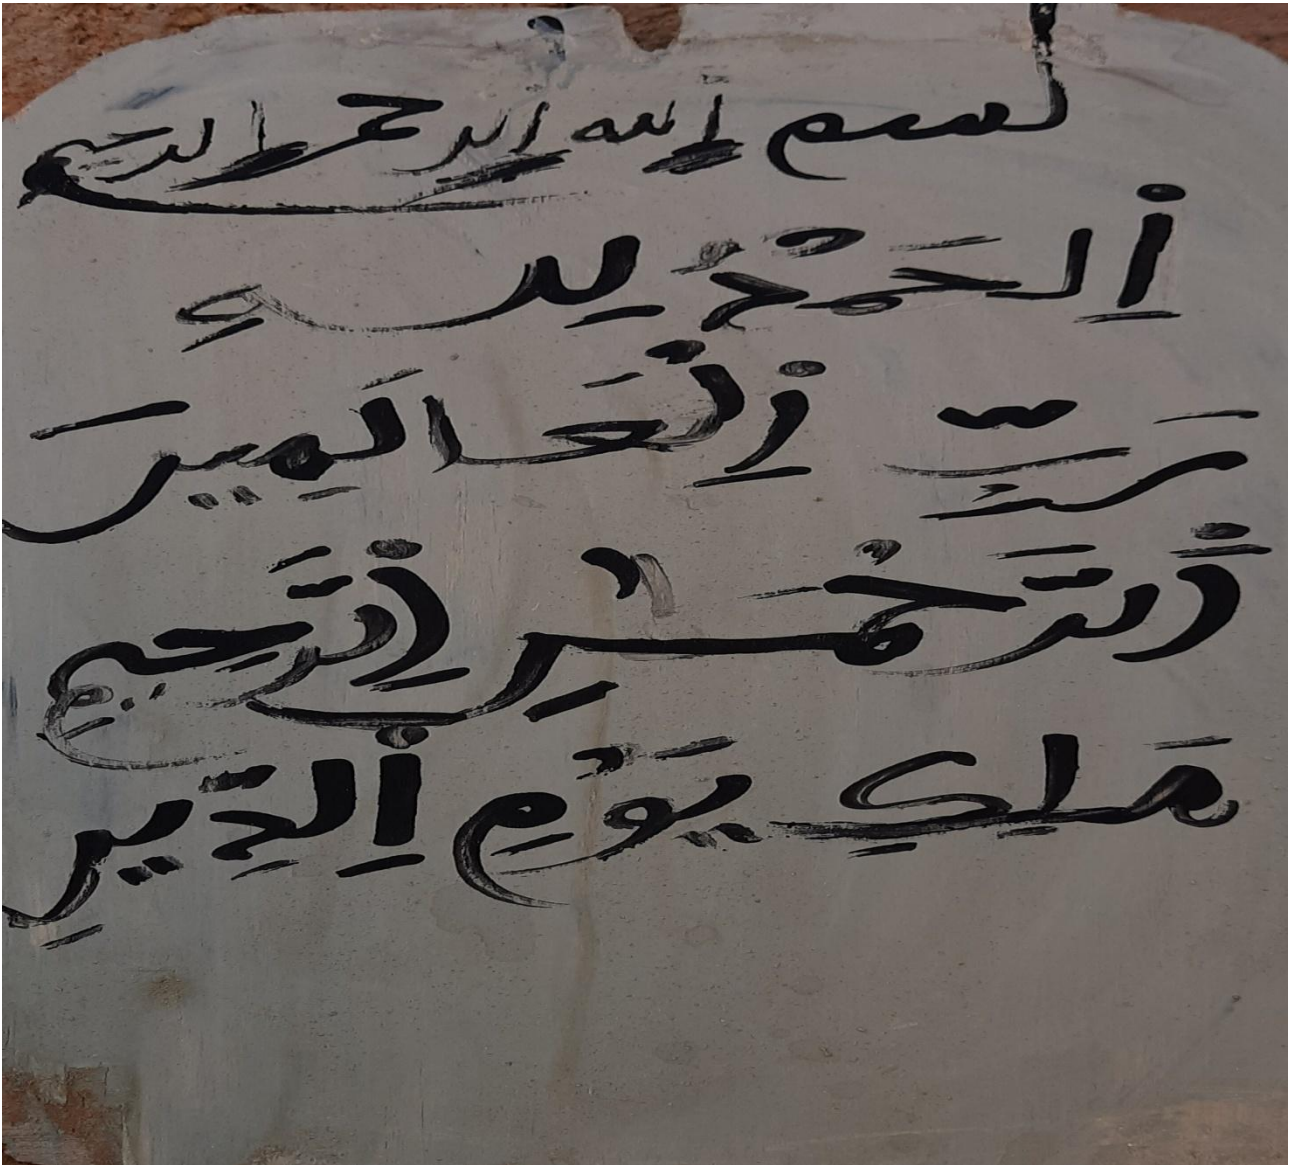 بسم الله الرحمن الرحيم
اَلحَمْدُ لِلهِ
رَبِّ اِلْعَالَمِينَ
اَلرَّحْمَٰنِ اِلرَّحِيمِ
مَلِكِ يَوْمِ اِلدِّينِ